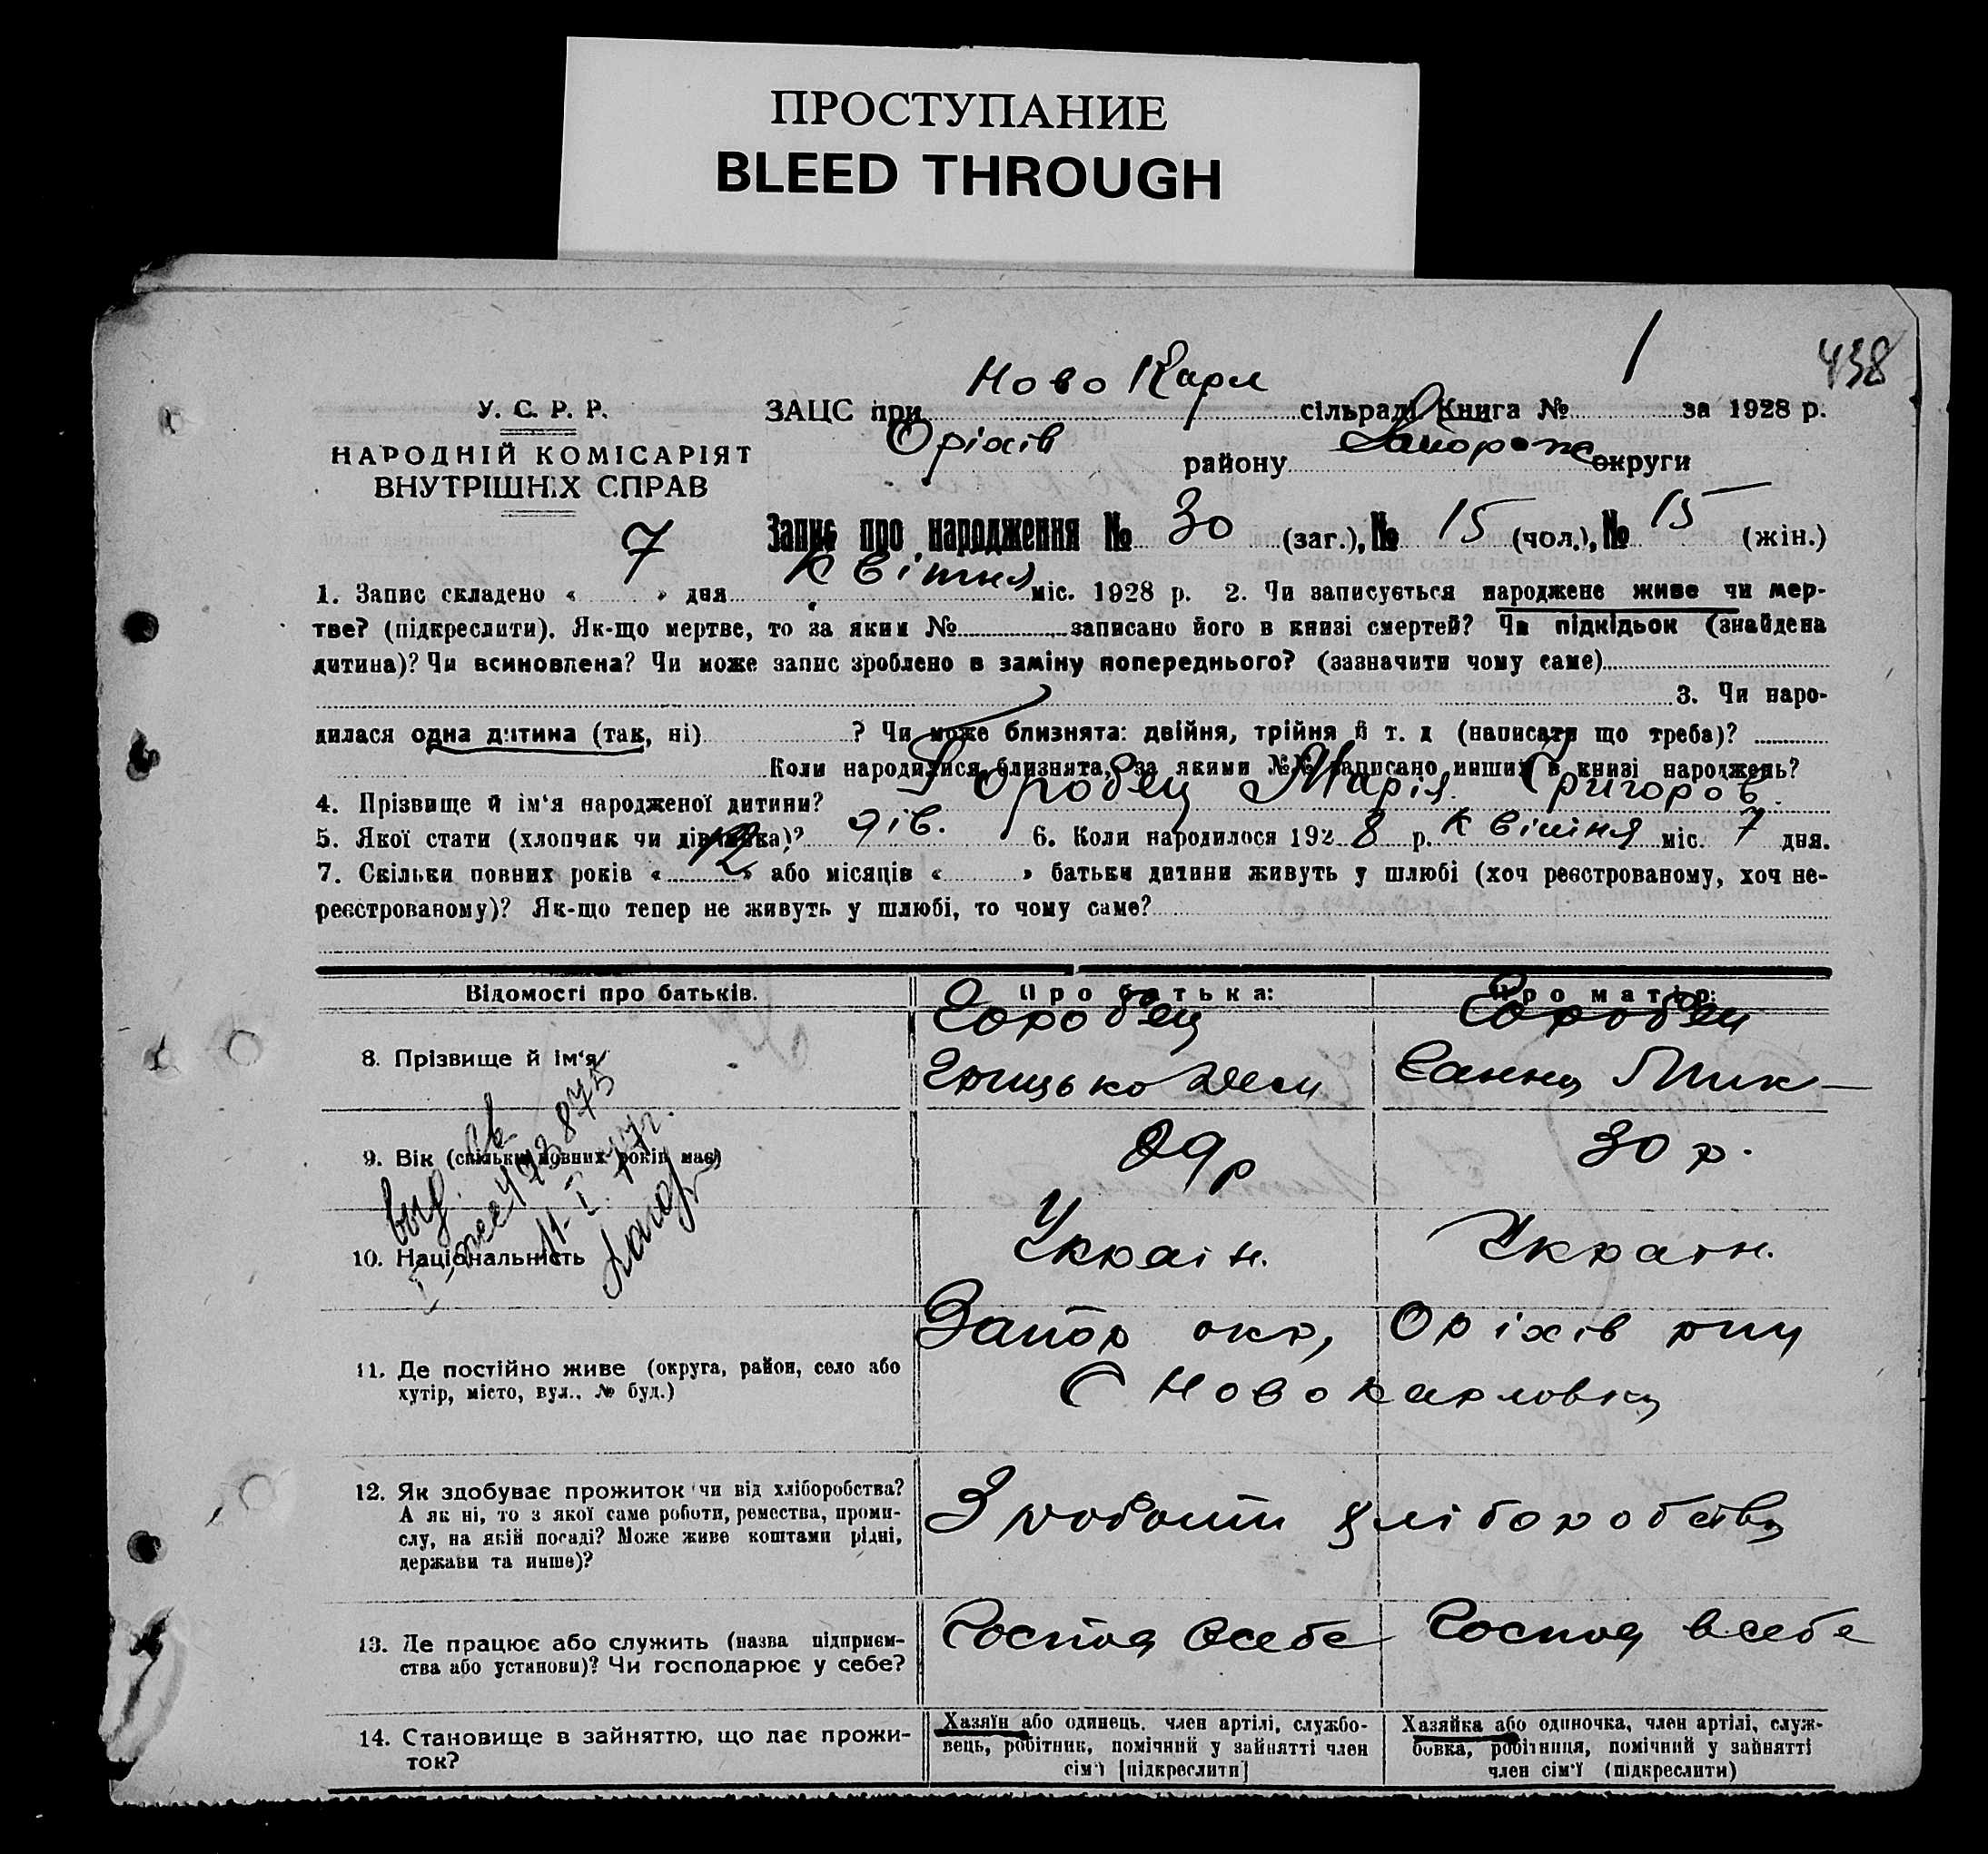 ПРОСТУПАНИЕ
BLEED THROUGH
438
У. С. Р. Р.
НАРОДНІЙ КОМІСАРІЯТ
ВНУТРІШНІХ СПРАВ
ЗАЦС при Ново Карл сільраді Книга № 1 за 1928 р.
Оріхів району Запорож округи
Запис про народження № 30 (заг.), № 15 (чол.), № 15 (жін.)
1. Запис складено « 7 » дня Квітня міс. 1928 р. 2. Чи записується народжене живе чи мер-
тве? (підкреслити). Як-що мертве, то за яким № записано його в книзі смертей? Чи підкідьок (знайдена
дитина)? Чи всиновлена? Чи може запис зроблено в заміну попереднього? (зазначити чому саме)
3. Чи наро-
дилася одна дитина (так, ні) ? Чи може близнята: двійня, трійня й т. д (написати що треба)?
Коли народилися близнята, за якими №№ записано инших в книзі народжень?
4. Прізвище й ім‘я народженої дитини? Горобец Марія Григоров
5. Якої стати (хлопчик чи дівчинка)? дів. 6. Коли народилося 1928 р. Квітня міс. 7 дня.
7. Скільки повних років « 12 » або місяців « » батьки дитини живуть у шлюбі (хоч реєстрованому, хоч не-
реєстрованому)? Як-що тепер не живуть у шлюбі, то чому саме?
Відомості про батьків. Про батька: Про матір:
8. Прізвище й ім‘я Горобец Горобец
Грицько Дем Ганна Мик
9. Вік (скільки повних років має) 29р 30 р.
10. Національність Україн. Україн.
11. Де постійно живе (округа, район, село або
хутір, місто, вул., № буд.)
Запор окр, Оріхів рну
С Новокарловка
12. Як здобуває прожиток чи від хліборобства?
А як ні, то з якої саме роботи, ремества, проми-
слу, на якій посаді? Може живе коштами рідні,
держави та инше)?
З роботи хліборобства
13. Де працює або служить (назва підприєм-
ства або установи)? Чи господарює у себе?
Господ всебе Господ всебе
14. Становище в зайняттю, що дає прожи-
ток?
Хазяїн або одинець, член артілі, службо-
вець, робітник, помічний у зайнятті член
сім‘ї [підкреслити]
Хазяйка або одиночка, член артілі, служ-
бовка, робітниця, помічний у зайнятті
член сім‘ї (підкреслити)